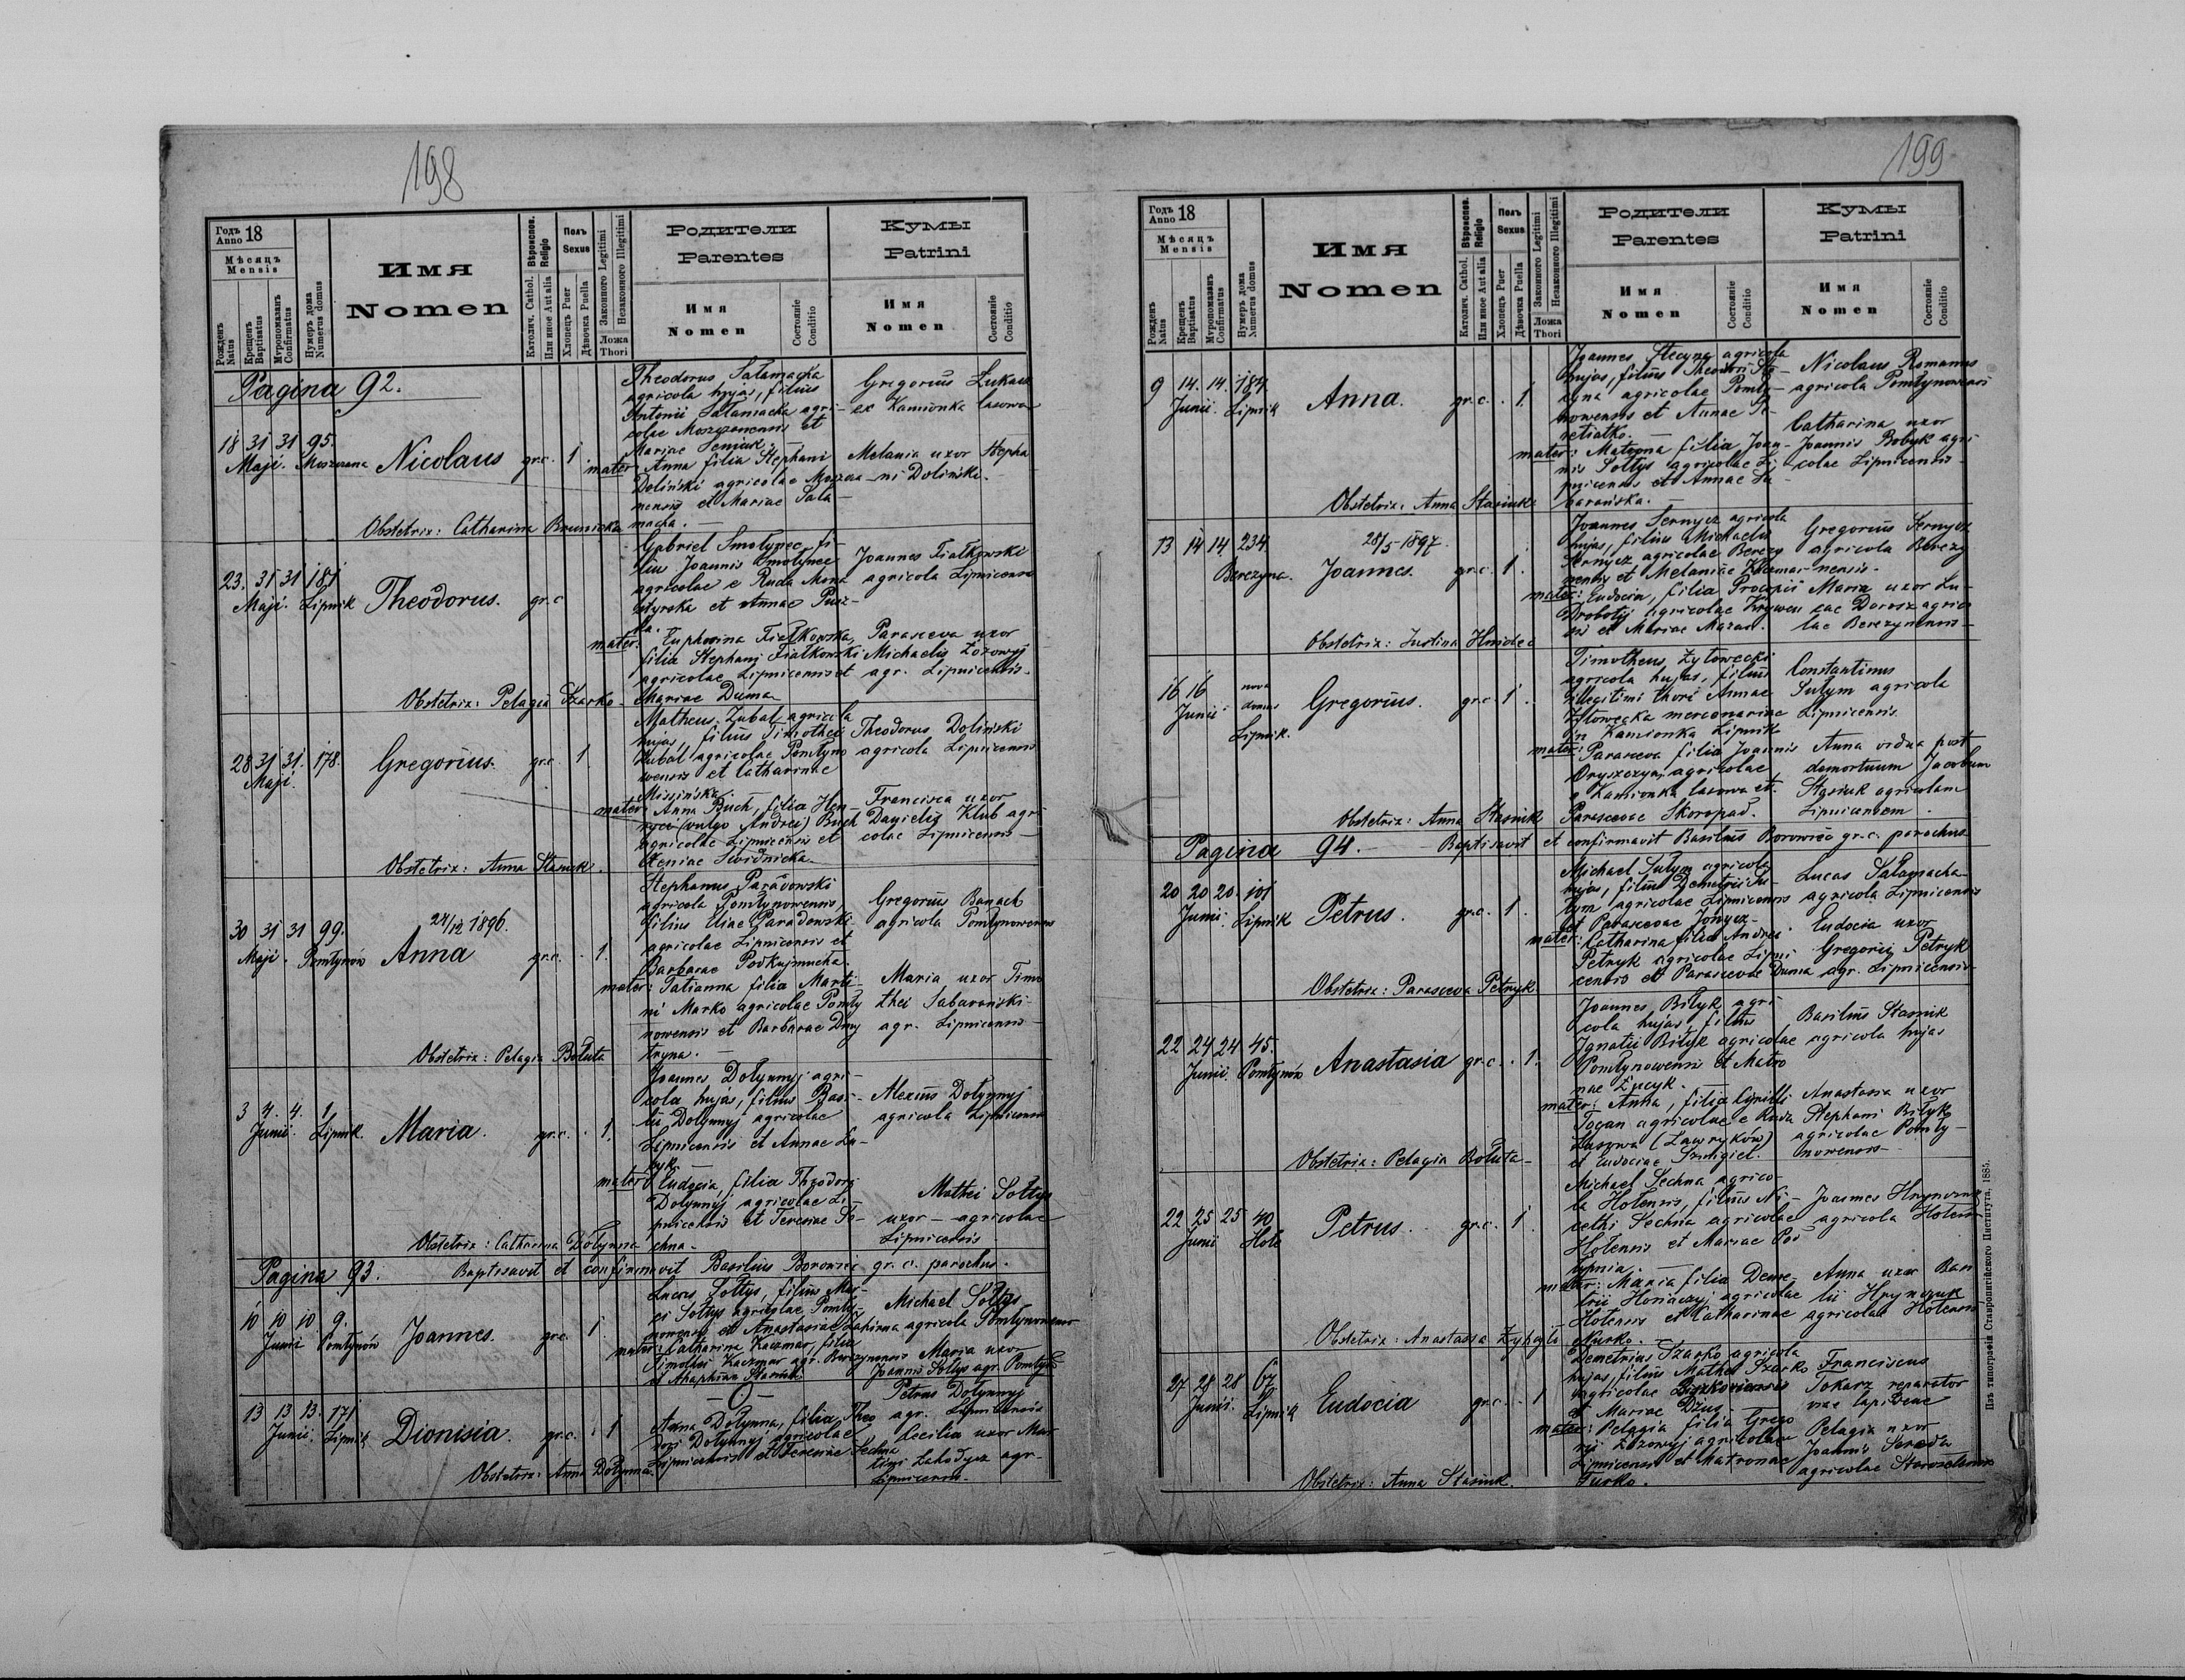 198
Годъ Anno 18
Мѣсяцъ Mensis
Рожденъ Natus
Крещенъ Baptisatus
Муропомазанъ Confirmatus
Нумеръ дома Numerus domus
Имя
Nomen
Вѣроиспов. Religio
Католич. Cathol.
Или иное Aut alia
Полъ Sexus
Хлопецъ Puer
Дѣвочка Puella
Законного Legitimi
Незаконного Illegitimi
Ложа Thori
Родители
Parentes
Имя Nomen
Состояніе Conditio
Кумы
Patrini
Имя Nomen
Состояніе Conditio
Pagina 92.
18 31 31 95.
Maji. Moszczana Nicolaus gr.c. 1
Theodorus Salamacha
agricola hujas, filius
Antonii Salamacha agri-
colae Moszczanensis et
Mariae Seniuk.
mater: Anna filia Stephani
Doliński agricolae Moszcza-
nensis et Mariae Sala-
macha.
Gregorius Lukasz
ex Kamionka lasowa
Melania uxor Stepha
ni Doliński.
Obstetrix: Catharina Brunicka
23. 31 31 181
Maji. Lipnik Theodorus. gr.c
Gabriel Smolynec fi-
lius Joannis Smolynec
agricolae e Ruda Mona
styrska et Annae Pusz-
ka.
mater: Euphrosina Fiałkowska,
filia Stephani Fiałkowski
agricolae Lipnicensis et
Mariae Duma
Joannes Fiałkowski
agricola Lipnicensis
Parasceva uxor
Michaelis Łozowyj
agr. Lipnicensis.
Obstetrix: Pelagia Szarko.
28 31 31. 178.
Maji Gregorius. gr.c. 1.
Matheus Zubal agricola
hujas, filius Timothei
Zubal agricolae Pomłyno
wensis et Catharinae
Miszińska.
mater: Anna Buch, filia Hen-
ryci (vulgo Andrei) Buch
agricolae Lipnicensis et
Xeniae Swidnicka.
Theodorus Doliński
agricola Lipnicensis
Francisca uxor
Danielis Klub agri
colae Lipnicensis
Obstetrix: Anna Stasiuk.
24/12 1896.
30 31 31 99.
Maji. Pomłynów Anna gr.c. . 1.
Stephanus Paradowski
agricola Pomłynowensis,
filius Eliae Paradowski
agricolae Lipnicensis et
Barbarae Podkujmucha.
mater: Tatianna filia Marti-
ni Marko agricolae Pomły
nowensis et Barbarae Dmy
tryna.
Gregorius Banach
agricola Pomłynowensis
Maria uxor Timo
thei Sabarański
agr. Lipnicensis
Obstetrix: Pelagia Bołuta
3 4. 4. 1
Junii. Lipnik. Maria. gr.c. . 1.
Joannes Dołynnyj agri-
cola hujas, filius Basi-
lii Dołynnyj agricolae
Lipnicensis et Annae
mater: Eudocia, filia Theodori
Dołynnyj agricolae Li-
pnicensis et Teresiae Se-
chna.
Alexius Dołynnyj
agricola Lipnicensis
Mathei Sołtys
uxor – agricolae
Lipnicensis
Obstetrix: Catharina Dołynna
Pagina 93. Baptisavit et confirmavit Basilius Borowiec gr. c. parochus.
10 10 10 9.
Junii Pomłynów Joannes. gr.c. 1.
Lucas Sołtys, filius
Sołtys agricolae Pomły-
nowensis et Anastasiae
mater: Catharina Kaczmar, filia
Timothei Kaczmar agr. Berezynensis
et Stasiuk.
Michael Sołtys
agricola Pomłynowensis
Maria uxor
Joannis Sołtys agr. Pomłyno
13 13 13. 171
Junii. Lipnik Dionisia. gr.c. . 1
— O —
Anna Dołynna, filia Theo
dori Dołynnyj agricolae
Lipnicensis et Teresiae Sechna
Petrus Dołynnyj
agr. Lipnicensis
Cecilia uxor Mar
tini agr.
Lipnicensis.
Obstetrix: Anna Dołynna.
199
Годъ Anno 18
Мѣсяцъ Mensis
Рожденъ Natus
Крещенъ Baptisatus
Муропомазанъ Confirmatus
Нумеръ дома Numerus domus
Имя
Nomen
Вѣроиспов. Religio
Католич. Cathol.
Или иное Aut alia
Полъ Sexus
Хлопецъ Puer
Дѣвочка Puella
Законного Legitimi
Незаконного Illegitimi
Ложа Thori
Родители
Parentes
Имя Nomen
Состояніе Conditio
Кумы
Patrini
Имя Nomen
Состояніе Conditio
9 14. 14. 184.
Junii. Lipnik Anna. gr.c. . 1.
Joannes Stecyna agricola
hujas, filius Theodori Ste-
cyna agricolae Pomły-
nowensis et Annae
mater: Matrona filia Joan-
nis Sołtys agricolae Li-
pnicensis et Annae Sa-
barańska.
Nicolaus Romanus
agricola Pomłynowensis
Catharina uxor
Joannis Bobyk agri
colae Lipnicensis
Obstetrix: Anna Stasiuk
28/5 1897.
13 14 14 234.
Berezyna. Joannes. gr.c. 1.
Joannes Sernycz agricola
hujas, filius Michaelis
Sernycz agricolae Berezy
nensis et Melaniae Kaczmar
mater: Eudocia, filia Procopii
Drobotij agricolae
et Mariae Mazar.
Gregorius Sernycz
agricola Berezy
nensis.
Maria uxor Lu-
cae Dorosz agrico
lae Berezynensis
Obstetrix: Justina Hnidec
16 16 nova
Junii domus Gregorius. gr.c. 1.
Lipnik.
Timotheus Żyłowecki
agricola hujas, filius
illegitimi thori Annae
Żyłowecka mercenariae
in Kamionka Lipnik
mater: Parasceva filia Joannis
Oryszczyn, agricolae
e Kamionka lasowa et
Parascevae Skoropad.
Constantinus
Sułym agricola
Lipnicensis
Anna vidua post
demortuum Jacobum
Stasiuk agricolam
Lipnicensem.
Obstetrix: Anna Stasiuk
Pagina 94. Baptisavit et confirmavit Basilius Borowiec gr. c. parochus
20 20 20. 101
Junii. Lipnik Petrus. gr.c. 1.
Michael Sułym agricola
hujas, filius Demetrii Su-
łym agricolae Lipnicensis
et Parascevae
mater: Catharina filia Andreae
Petryk agricolae Lipni
censis et Parascevae Duma
Lucas Salamacha
agricola Lipnicensis
Eudocia uxor
Gregorii Petryk
agr. Lipnicensis
Obstetrix: Parasceva Petryk
22 24 24 45.
Junii. Pomłynów Anastasia gr.c. . 1.
Joannes Bilyk agri-
cola hujas, filius
Ignatii Bilyk agricolae
Pomłynowensis et Matro
nae
mater: Anna, filia Cyrilli
Tocan agricolae e Ruda
(Ławryków)
et Eudociae Szmigiel.
Basilius Stasiuk
agricola hujas
Anastasia uxor
Stephani Bilyk
agricolae Pomły-
nowensis
Obstetrix: Pelagia Bołuta
22 25 25 40
Junii Hole Petrus. gr.c. 1.
Michael Sechna agrico-
la Holensis, filius Ni-
cethi Sechna agricolae
Holensis et Mariae
mater: Maria filia Deme-
trii Horiaczyj agricolae
Holensis et Catharinae
Nurko.
Joannes Hrynczuk
agricola Holensis
Anna uxor Basi
lii Hrynczuk
agricolae Holensis
Obstetrix: Anastasia
27 28 28 67.
Junii. Lipnik Eudocia gr.c. . 1
Demetrius Szarko agricola
hujas, filius Mathei Szarko
agricolae
et Mariae Dżus
mater: Pelagia filia Grego
rii Łozowyj agricolae
Lipnicensis et Matronae
Furko.
Franciscus
Tokarz reparator
viae lapideae
Pelagia uxor
Joannis Sereda
agricolae
Obstetrix: Anna Stasiuk.
Изъ типографіи Ставропигійского Института. 1885.